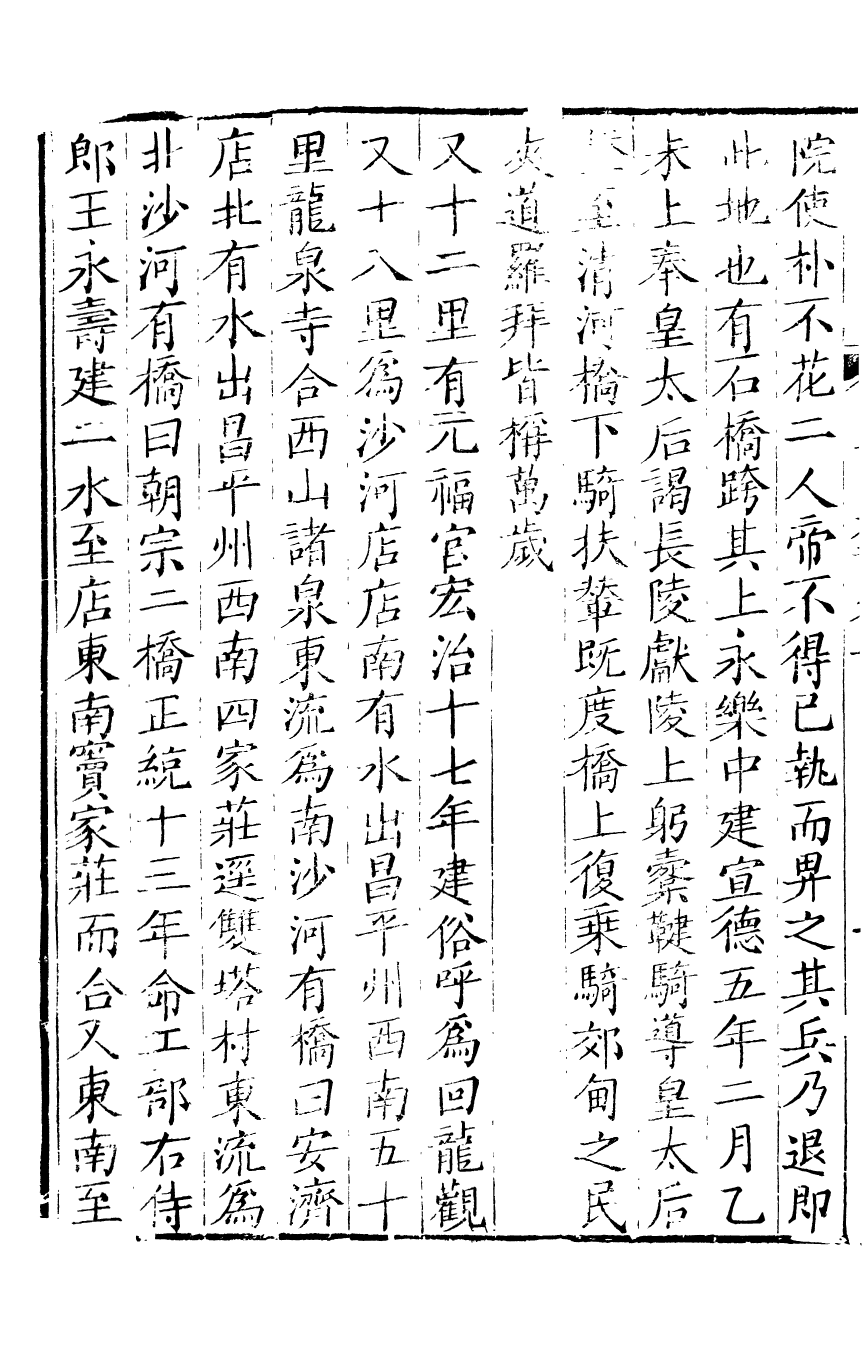 院使朴不花二人帝不得已執而畀之其兵乃退即
此地也有石橋跨其上永樂中建宣德五年二月乙
未上奉皇太后謁長陵獻陵上躬櫜鞬騎導皇太后
至清河橋下騎扶輦既度橋上復乗騎郊甸之民
夾道羅拜皆稱萬歲
又十二里有元福宫宏治十七年建俗呼爲回龍觀
又十八里爲沙河店店南有水出昌平州西南五十
里龍泉寺合西山諸泉東流爲南沙河有橋曰安濟
店北有水出昌平州西南四家莊逕雙塔村東流爲
北沙河有橋曰朝宗二橋正統十三年命工部右侍
郎王永壽建二水至店東南竇家莊而合又東南至